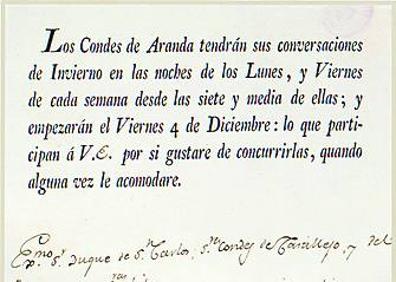 Los Condes de Aranda tendrán sus conversaciones
de Invierno en las noches de los Lunes, y Viernes
de cada semana desde las siete y media de ellas; y
empezarán el Viernes 4 de Diciembre: lo que parti-
cipan á V.E. por si gustare de concurrirlas, quando
alguna vez le acomodare.
Exmo. Sr. Duque de Sn. Carlos, Sn. Conde de y del